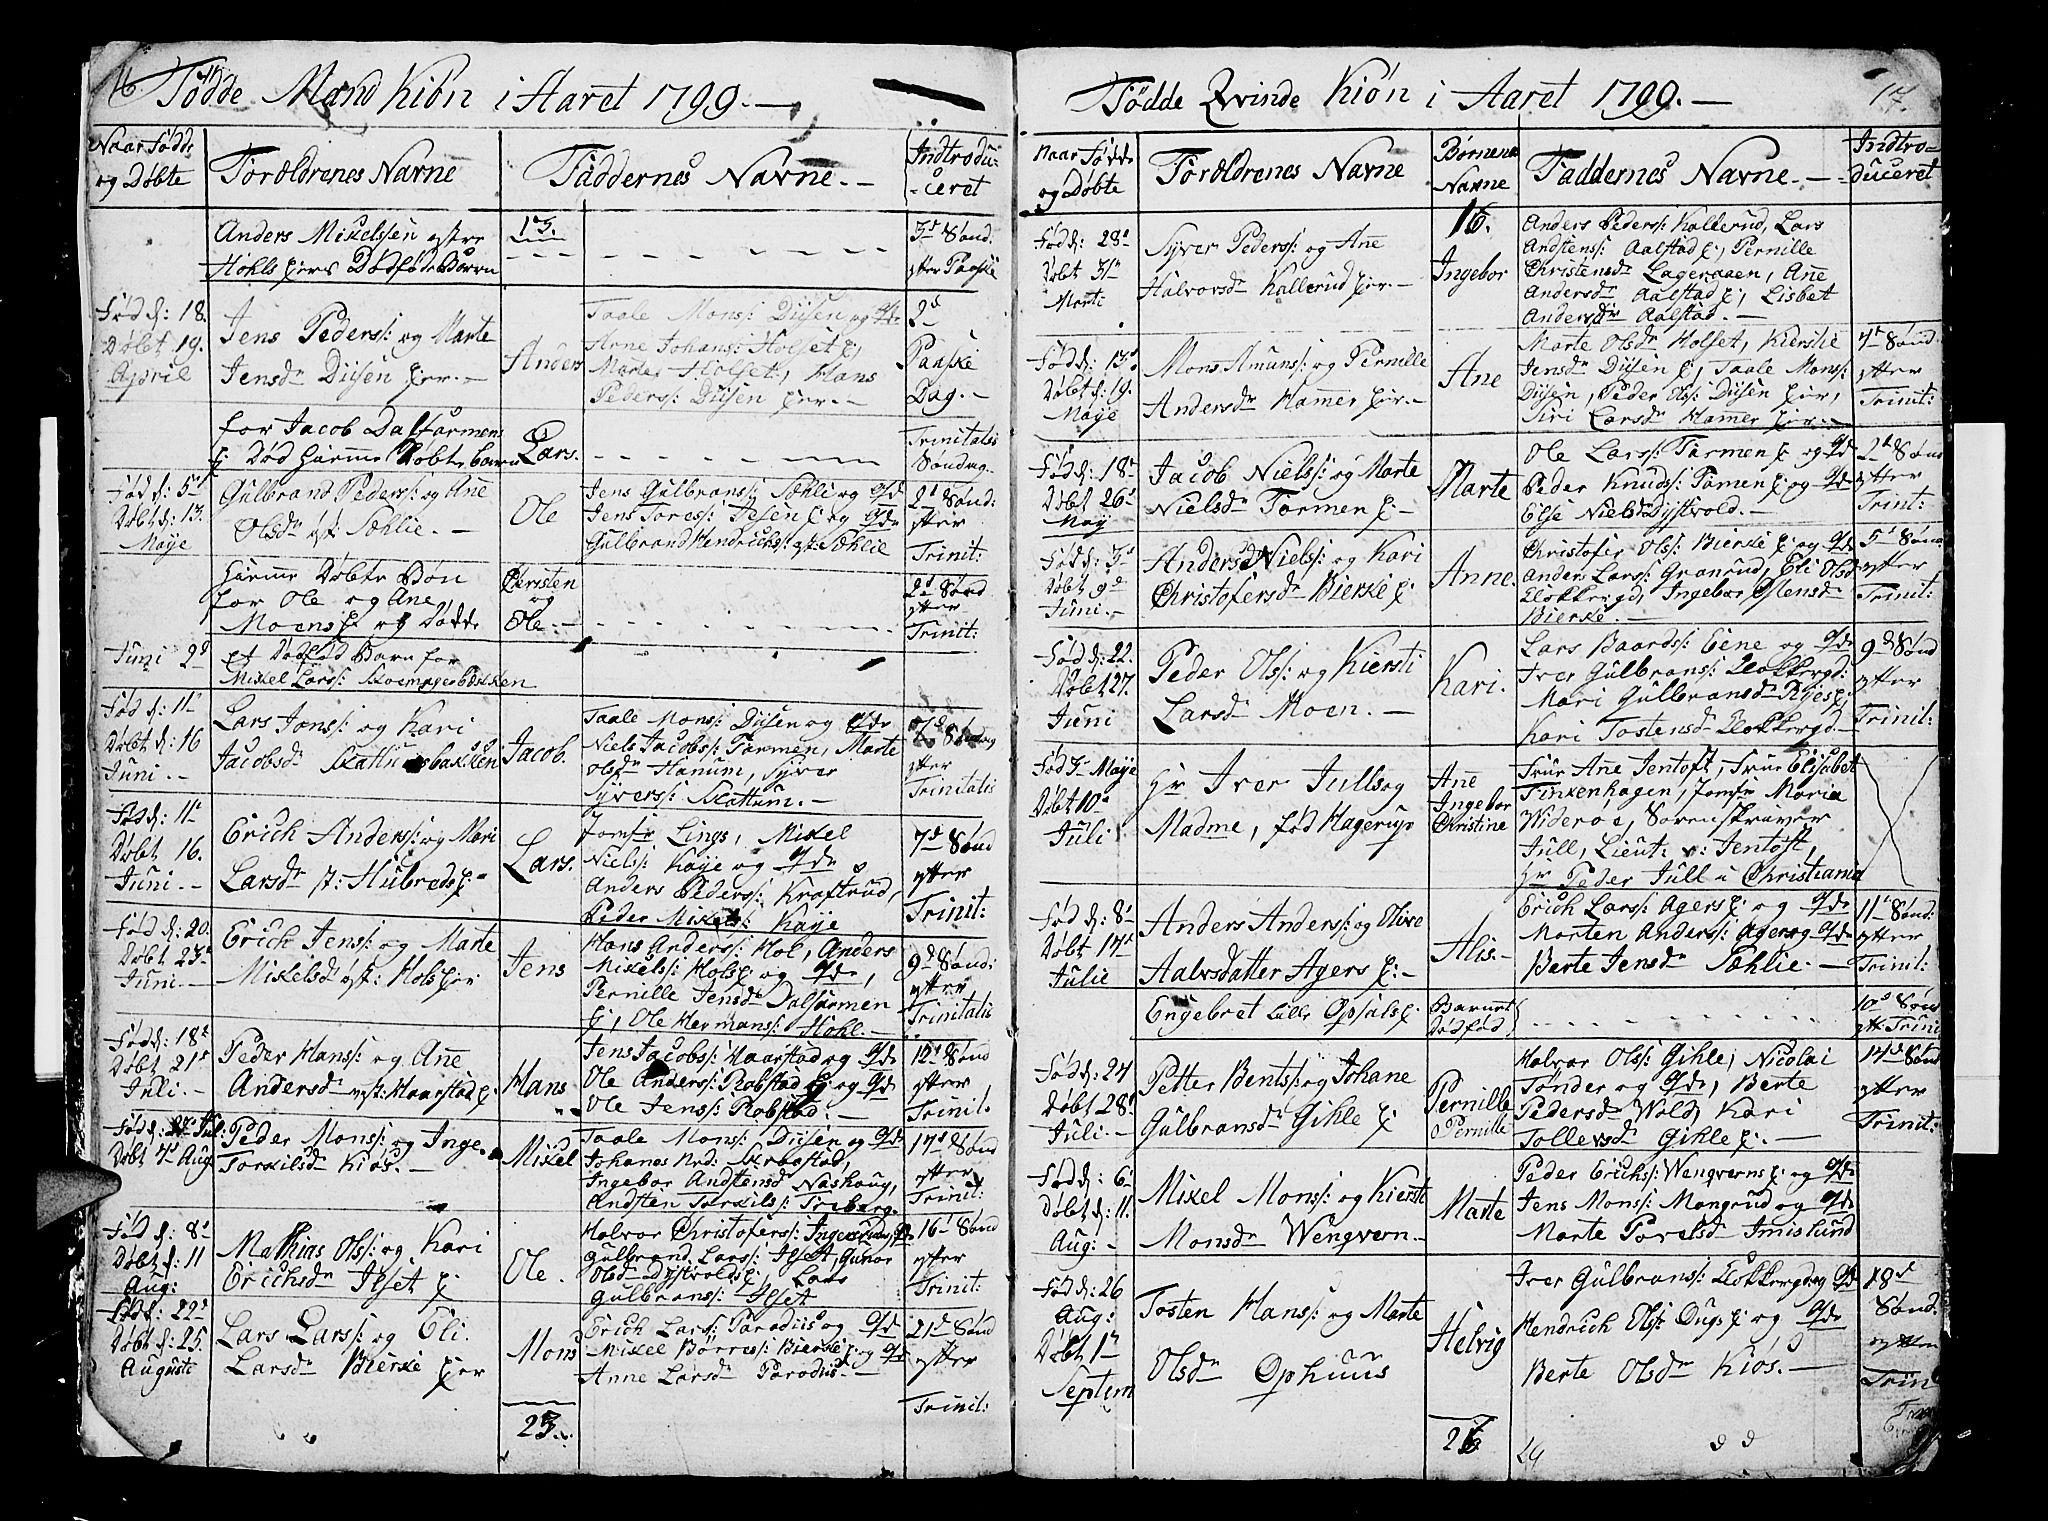 16.
Fødde Mand Kiøn i Aaret 1799.
Naar Fødde
og Døbte
Forældrenes Navne
Faddernes Navne.
Indtrodu-
ceret
Anders Mikelssen
Hohls Dødfødt Barn
13.
3d Sønd:
efter Paaske
Fød d: 18.
Døbt 19.
April
Jens Peders: og Marte
Jensdr Diisen
Anders
Taale Mons: Diisen og
Arne Johans: Holset
Marte Holset, Hans
Peders: Diisen
2d
Paaske
Dag.
for Jacob Dalfarmens
Død hiemme Døbte barn
Lars.
Trinitatis
Søndag.
Fød d: 5
Døbt d: 13.
Maye
Gulbrand Peders: og Ane
Olsdr Sæhlie.
Ole
Jens Gulbrans: Sæhli og
Jens Tores: og
Gulbrand Hendrichs: Sæhlie
2d Sønd:
efter
Trinit:
hiemme Døbte Bøn
for Ole og Ane
Moens og Døde
Christen
og
Ole.
2d Sønd
efter
Trinit:
Juni 2d
et Dødfød Barn for
Mikel Lars: Skoemagerbakken
Fød d: 11
Døbt d: 16
Juni.
Lars Jons: og Kari
Jacobsdr Skattumsbakken
Jacob.
Taale Mons: Diisen og
Niels Jacobs: Farmen, Marte
Olsdr Hanum, Syver
Syvers: Skattum.
7d Søndag
efter
Trinitatis
Fød d: 11
Døbt 16.
Juni.
Erich Anders: og Mari
Larsdr Hubreds
Lars.
Jomfr Lings, Mikel
Niels: Kaye og
Anders Peders: Kraftrud,
Peder Mikels: Kaye
7d Sønd
efter
Trinit:
Fød d: 20.
Døbt 23d
Juni.
Erich Jens: og Marte
Mikelsdr Hols
Jens
Hans Anders: Hol, Anders
Mikels: Hols og
Pernille Jensdr Dalfarmen
Ole Hermans: Hohl.
9d Sønd:
efter
Trinitatis
Fød d: 18
Døbt 21
Juli.
Peder Hans: og Ane
Andersdr Haarstad
Hans
Jens Jacobs: Haarstad og
Ole Anders: Robstad og
Ole Jens: Robstad.
12 Sønd
efter
Trinit.
Døbt 4 Aug
Peder Mons: og Inge
Torkilsdr Kiøs.
Mikel
Taale Mons: Diisen og
Johanes
Ingebor Andtensd Nashoug,
Andsten Torkils: Friberg.
17d Sønd
efter
Trinit:
Fød d: 8
Døbt d: 11
Aug:
Mathias Ols: og Kari
Erichsdr Ilset
Ole
Halvor Christofers:
Gulbrand Lars: Ilset, Gunor
Olsdr Dystvolds, Lars
Gulbrans: Ilset
16 Sønd
efter
Trinit:
Fød d: 22
Døbt d: 25.
Auguste
Lars Lars: og Eli
Larsdr Bierke
Mons
Erich Lars: Paradiis og
Mikel Børres: Bierke og
Anne Larsd Paradiis.
21d Sønd
efter
Trinit:
23.
17.
Fødde Qvinde Kiøn i Aaret 1799.
Naar Fødde
og Døbte
Forældrenes Navne
Børnenes
Navne
Faddernes Navne.
Indtro-
duceret
Fød d: 28
Døbt 31
Marti:
Syver Peders: og Ane
Halvorsdr Kallerud
16.
Ingebor
Anders Peders: Kallerud, Lars
Andstens: Aalstad, Pernille
Christensdr Lageraaen, Ane
Andersdr Aalstad, Lisbet
Andersdr Aalstad.
Fød d: 13
Døbt d: 19.
Maye
Mons Amuns: og Pernille
Andersdr Hamer
Ane
Marte Olsdr Holset, Kierstie
Jensdr Diisen, Taale Mons:
Diisen, Peder Ols: Diisen
Siri Larsdr Hammer
7d Sønd.
efter
Trinit:
Fød d: 18
Døbt 26
May
Jacob Niels: og Marte
Nielsdr Farmen
Marte
Ole Lars: Farmen og
Peder Knuds: Farmen og
Else Nielsdr Dystvold.
2d Sønd
efter
Trinit:
Fød d: 3
Døbt 9d
Juni.
Anders Niels: og Kari
Christofersdr Bierke
Anne.
Christofer Ols: Bierke og
Anders Lars: Granrud, Eli Olsd
Klokkergd, Ingebor Ostensdr
Bierke.
5 Sønd
efter
Trinit:
Fød d: 22.
Døbt 27.
Juni
Peder Ols: og Kiersti
Larsdr Moen.
Kari.
Lars Baards: Eene og
Iver Gulbrans: Klokkergd:
Mari Gulbransdr
Kari Tostensd Klokkergd.
9d Sønd
efter
Trinit:
Fød 3 Maye
Døbt 10
Juli
Hr Iver Jull og
Madme, fød Hagerup
Ane
Ingebor
Christine
Frue Ane Jentoft, Frue Elisabet
Finkenhagen, Jomfr Maria
Widerøe, Sorenskriver
Jull, Lieut: v: Jentoft,
Hr Peder Jull i Christiania
Fød d: 8
Døbt 14
Julie
Anders Anders: og Olive
Aalvsdatter Agers
Alis.
Erich Lars: Agers og
Morten Anders: Ager og
Berte Jensdr Sæhlie.
11 Sønd:
efter
Trinit:
Engebret Lille Opsals
Barnet
Dødfød
10d Sønd
eft Trini
Fød d: 24
Døbt 28
Juli.
Petter Bents: og Johane
Gulbransdr Gihle
Pernille
Pernille
Halvor Ols: Gihle, Nicolai
Tønder og, Berte
Pedersdr Wold, Kari
Tollevsd Gihle.
14d Sønd
efter
Trinit:
Fød d: 6
Døbt d: 11.
Aug:
Mikel Mons: og Kierste
Monsdr Wengvern
Marte
Peder Erichs: Wengverns og
Jens Mons: Mangrud og
Marte Porelsd Imislund
Fød d: 26
Aug:
Døbt 1
Septem
Tosten Hans: og Marte
Olsdr Ophuus
Helvig
Iver Gulbrans: Klokkergd og
Hendrich Ols: og
Berte Olsdr Kiøs.
18d
Sønd.
efter
Trin
26
24